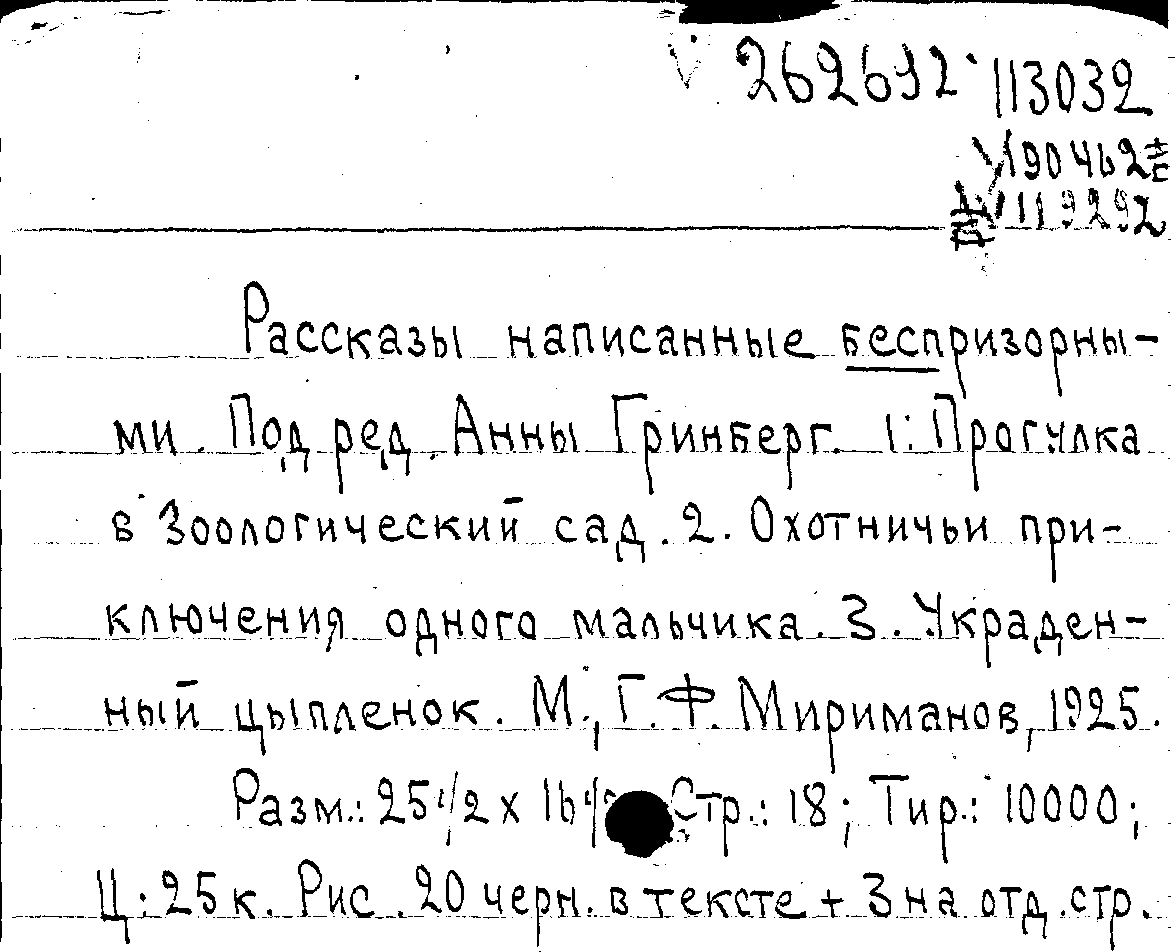 262692 113032
190462
119292
Рассказы написанные беспризорны-
ми. Под ред. Анны Гринберг. 1: Прогулка
в Зоологический сад. 2. Охотничьи при-
ключения одного мальчика. 3. Украден-
ный цыпленок. М., Г. Ф. Мириманов, 1925.
Разм.: 25 1/2 х 16 Стр.: 18; Тир.: 10000;
Ц.: 25 к. Рис. 20 черн. в тексте + 3 на отд. стр.